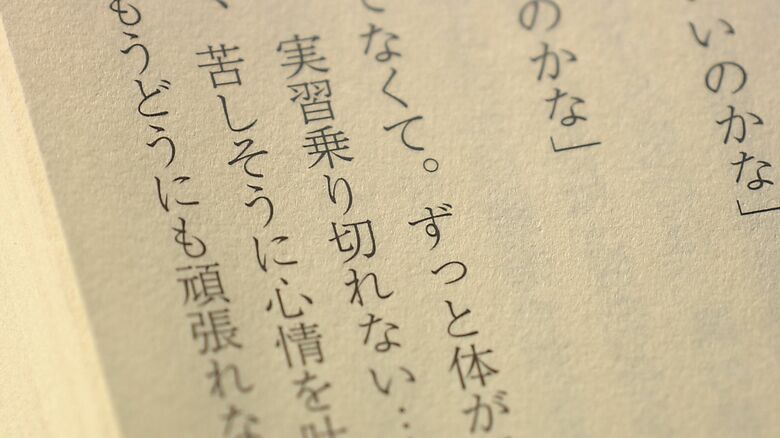 いのかな」
のかな」
でなくて。ずっと体が
実習乗り切れない…
、苦しそうに心情を吐
もうどうにも頑張れな